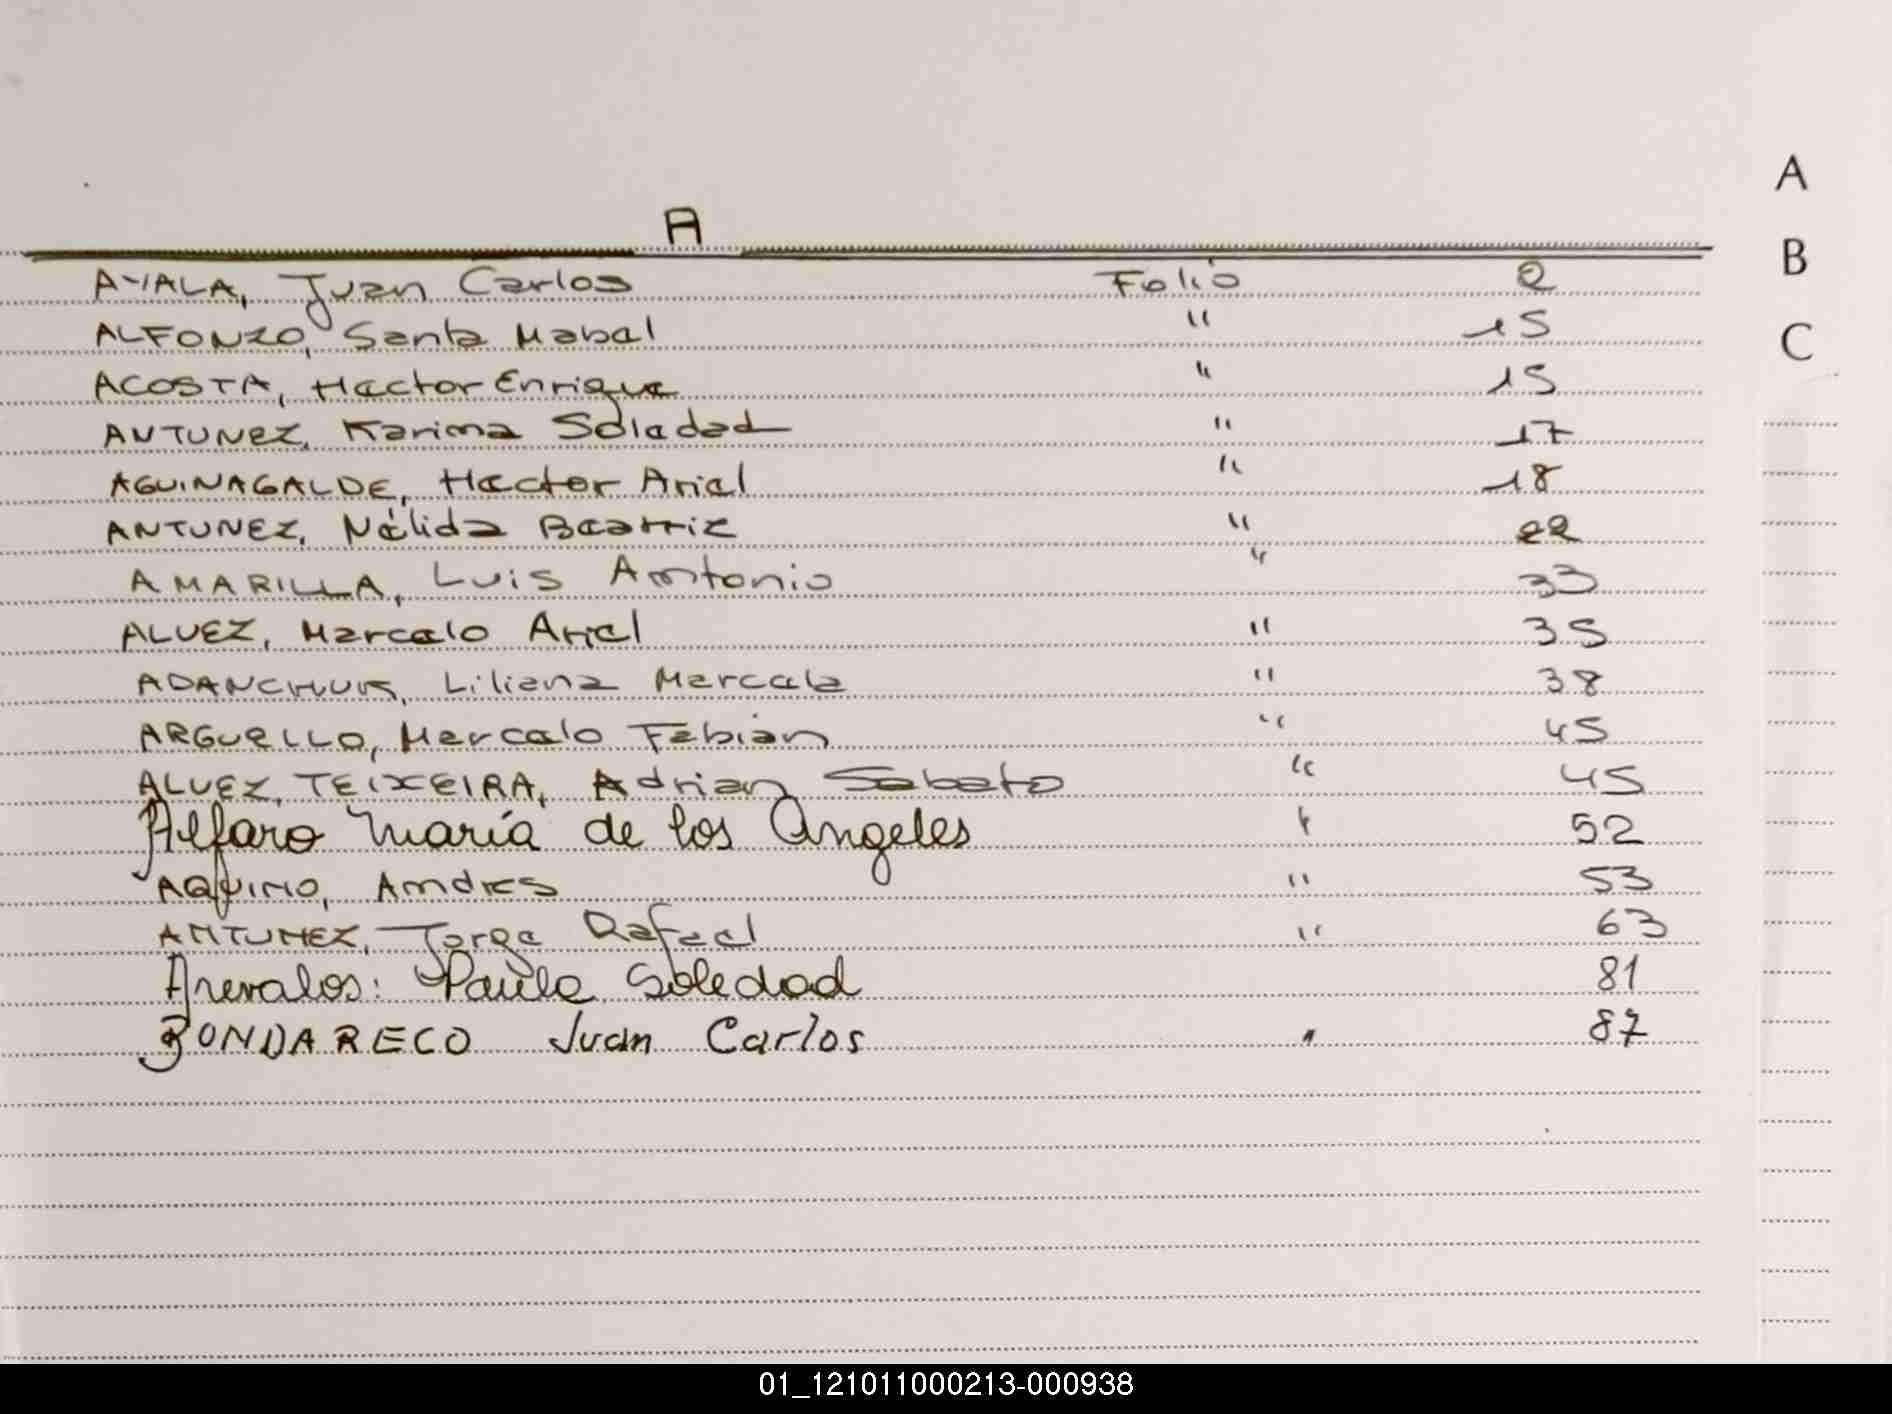 A
AYALA, Juan Carlos Folio 2
ALFONZO, Santa Mabel " 15
ACOSTA, Hector Enrique " 15
ANTUNEZ, Karina Soledad " 17
AGUINAGALDE, Hector Ariel " 18
ANTUNEZ, Nélida Beatriz " 22
AMARILLA, Luis Antonio " 33
ALVEZ, Marcelo Ariel " 35
ADANCHUK, Liliana Marcela " 38
ARGUELLO, Marcelo Fabián " 45
ALVEZ, TEIXEIRA, Adrian Sabato " 45
Alfaro María de los Angeles " 52
AQUINO, Andres " 53
ANTUNEZ, Jorge Rafael " 63
Arevalos: Paula Soledad 81
BONDARECO Juan Carlos " 87
A
B
C
01_121011000213-000938